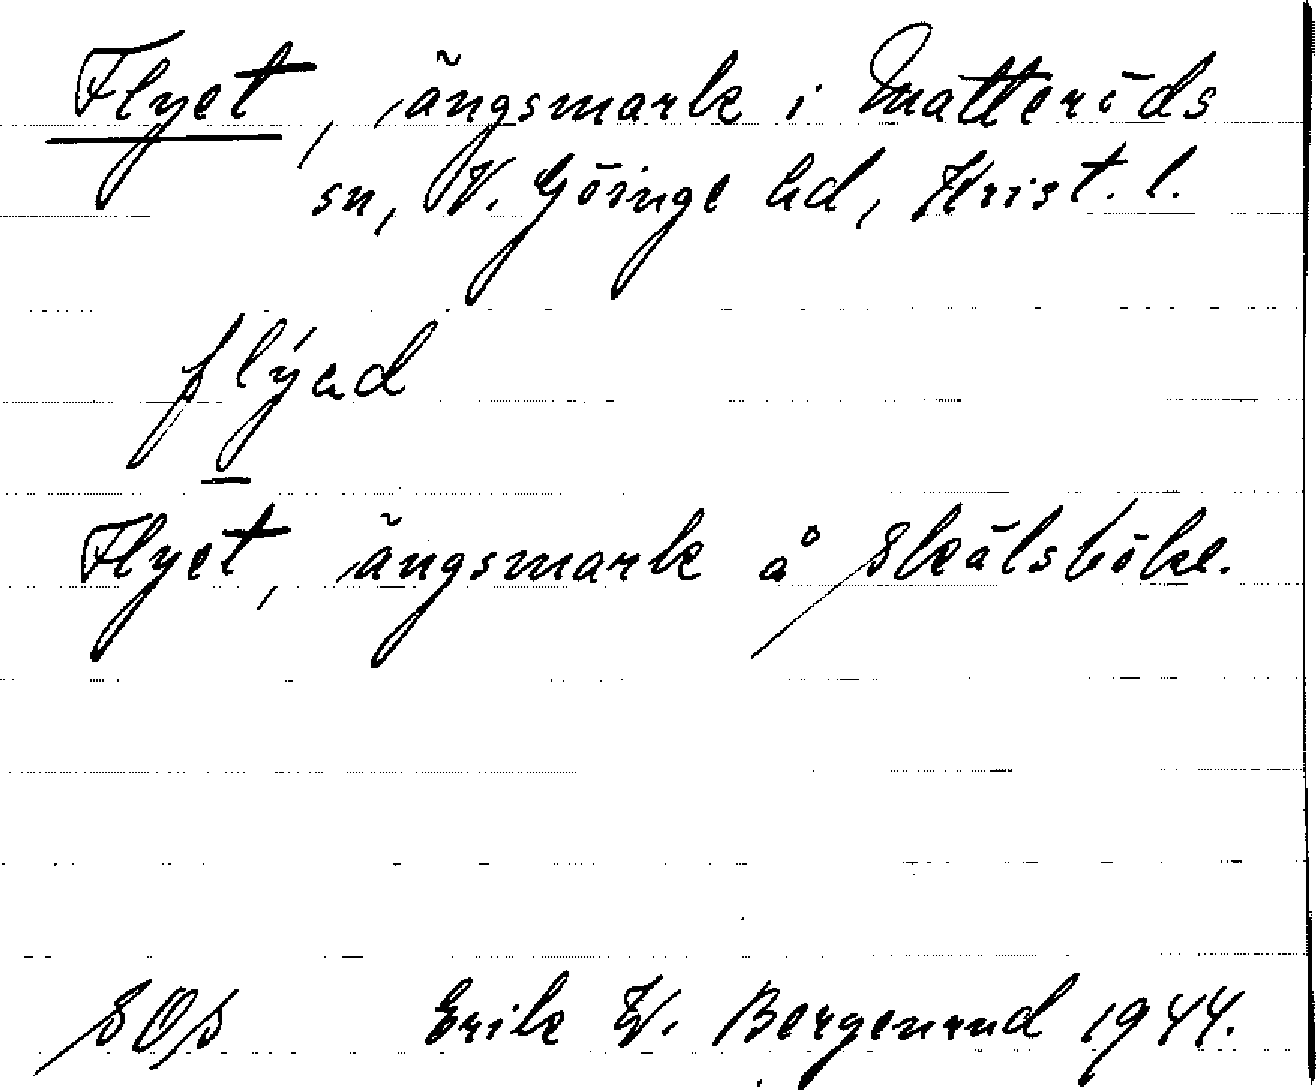 Flyet, ängsmark i Matteröds
sn, V. Göinge hd, Krist. l.
flýad
Flyet, ängsmark å Skälsböke.
SOS Erik W. Bergenrud 1944.